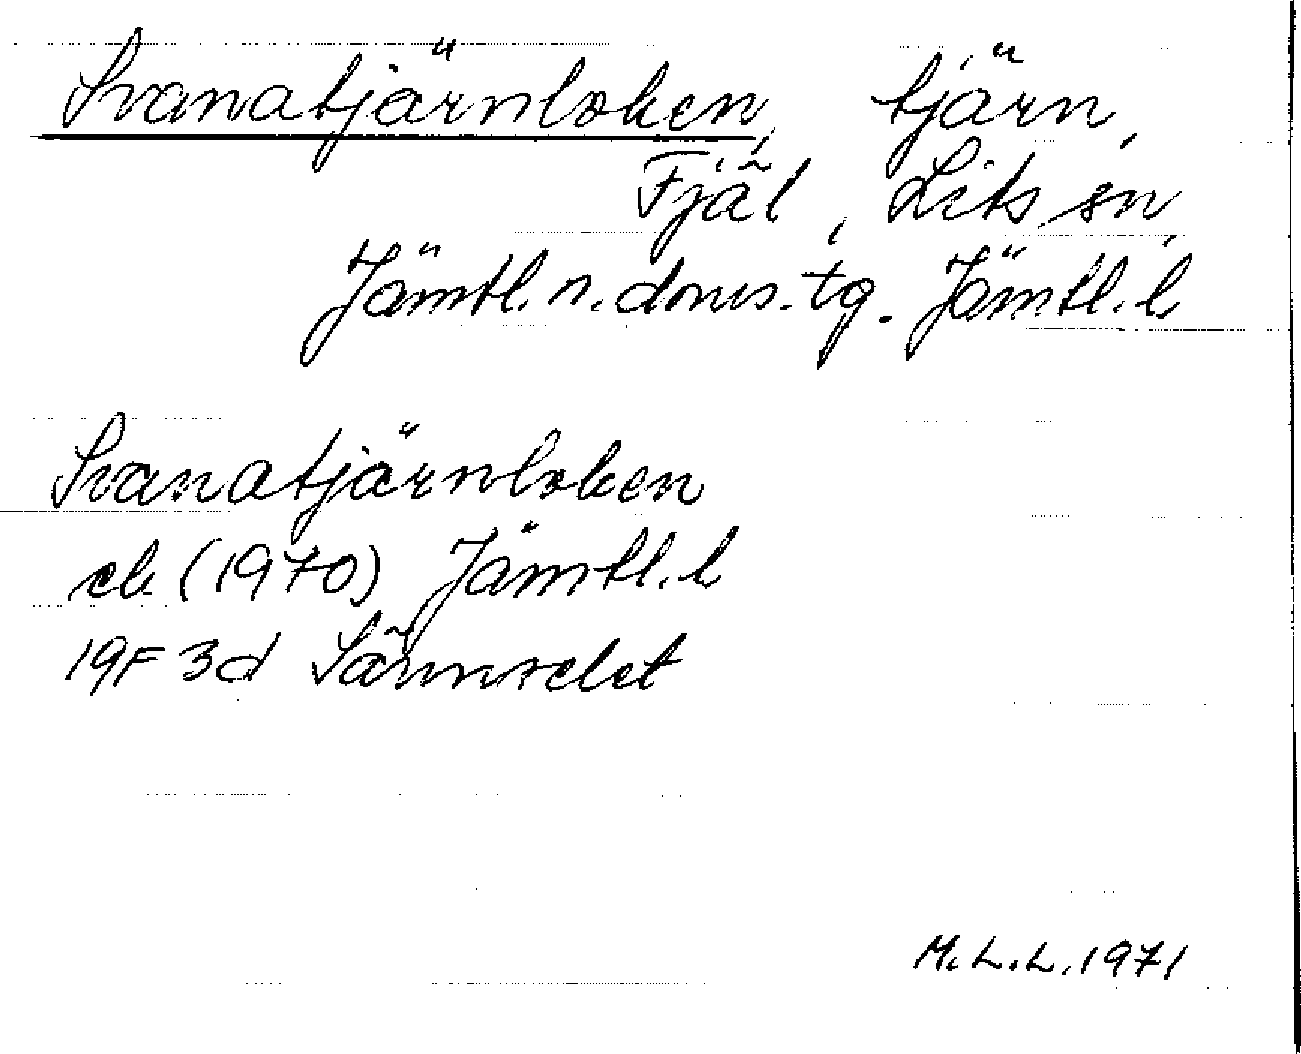 Svanatjärnloken, tjärn,
Fjäl, Lits sn,
Jämtl. n. doms. tg. Jämtl. l
Svanatjärnloken
ek (1970) Jämtl. l
19F 3d Sännselet
M.L.L. 1971